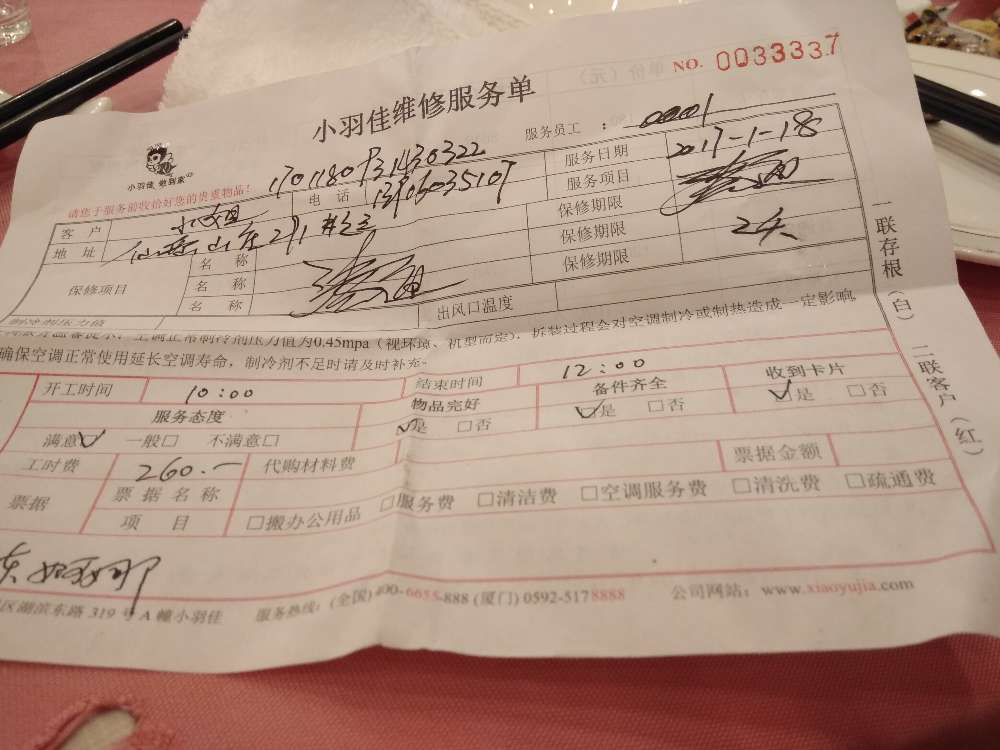 NO. 0033337
小羽佳维修服务单
服务员工 : 0001
小羽佳 做到家
17011807931430322
请您于服务前收拾好您的贵重物品!
电 话 13906035107
服务日期 2017-1-18
客 户
服务项目
地 址
保修期限
保修项目 名 称
保修期限 2天
名 称
保修期限
名 称
出风口温度
制冷剂压力值
空调正常制冷剂压力值为0.45mpa(视环境、机型而定). 拆装过程会对空调制冷或制热造成一定影响
确保空调正常使用延长空调寿命,制冷剂不足时请及时补充.
开工时间 10:00 结束时间 12:00
服务态度 物品完好 备件齐全 收到卡片
满意☑ 一般□ 不满意□ ☑是 □否 ☑是 □否 ☑是 □否
工时费 260.— 代购材料费 票据金额
票据 票 据 名 称
项 目 □搬办公用品 □服务费 □清洁费 □空调服务费 □清洗费 □疏通费
区湖滨东路 319 号 A 幢小羽佳 服务热线: (全国)400-6655-888 (厦门) 0592-5178888 公司网站: www.xiaoyujia.com
一联存根(白) 二联客户(红)